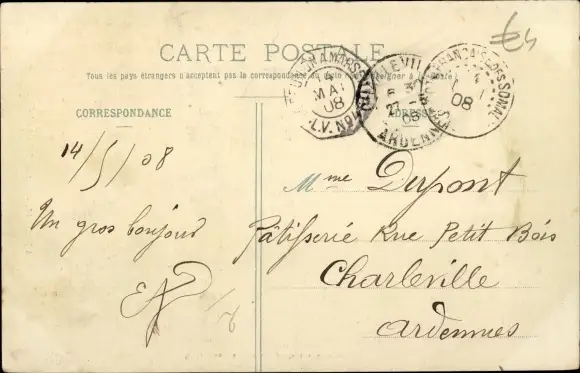 €4
CARTE POSTALE
Tous les pays étrangers n'acceptent pas la correspondance au
CORRESPONDANCE
ADRESSE
MAI
08
ARDENN
27
08
08
14/5/08
Un gros bonjour
Mme Dupont
Pâtisserie Rue Petit Bois
Charleville
Ardennes